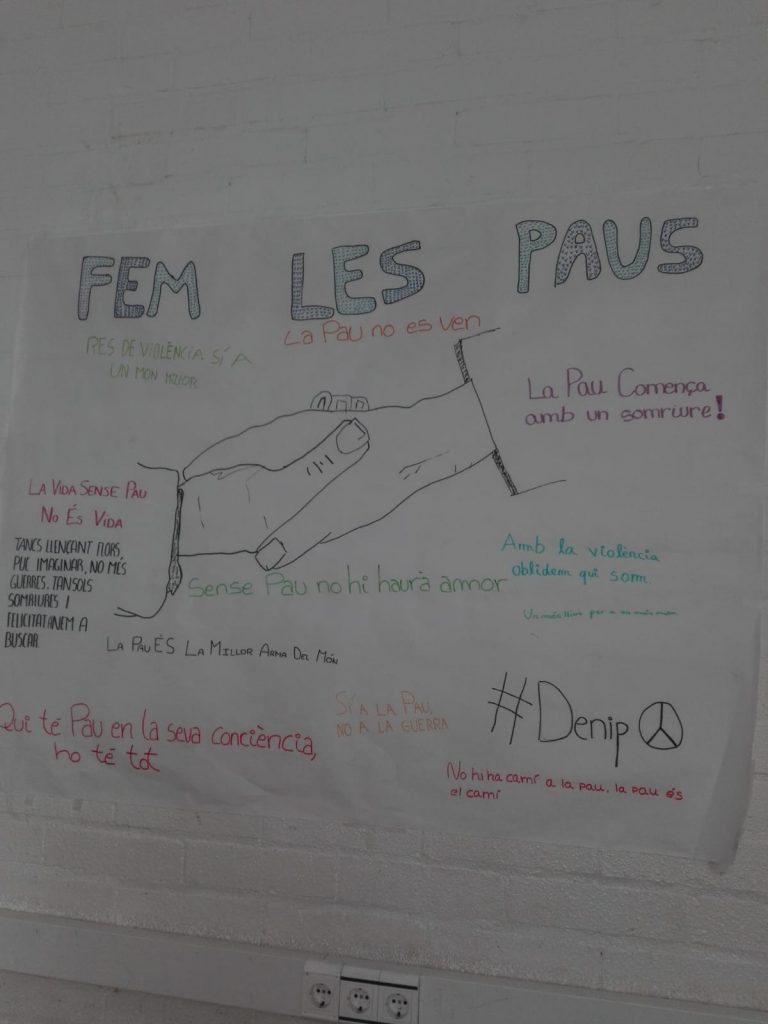 FEM LES PAUS
RES DE VIOLÈNCIA SÍ A
UN MON MILLOR
La Pau no es ven
La Pau Comença
amb un somriure!
LA VIDA SENSE PAU
NO ÉS VIDA
TANCS LLENÇANT FLORS,
PUC IMAGINAR, NO MÉS
GUERRES. TAN SOLS
SOMRIURES I
FELICITAT ANEM A
BUSCAR.
Amb la violència
oblidem qui som.
Sense Pau no hi haurà amor
LA PAU ÉS LA MILLOR ARMA DEL MÓN
Qui té Pau en la seva conciència,
ho té tot
SÍ A LA PAU,
NO A LA GUERRA
#Denip
No hi ha camí a la pau, la pau és
el camí